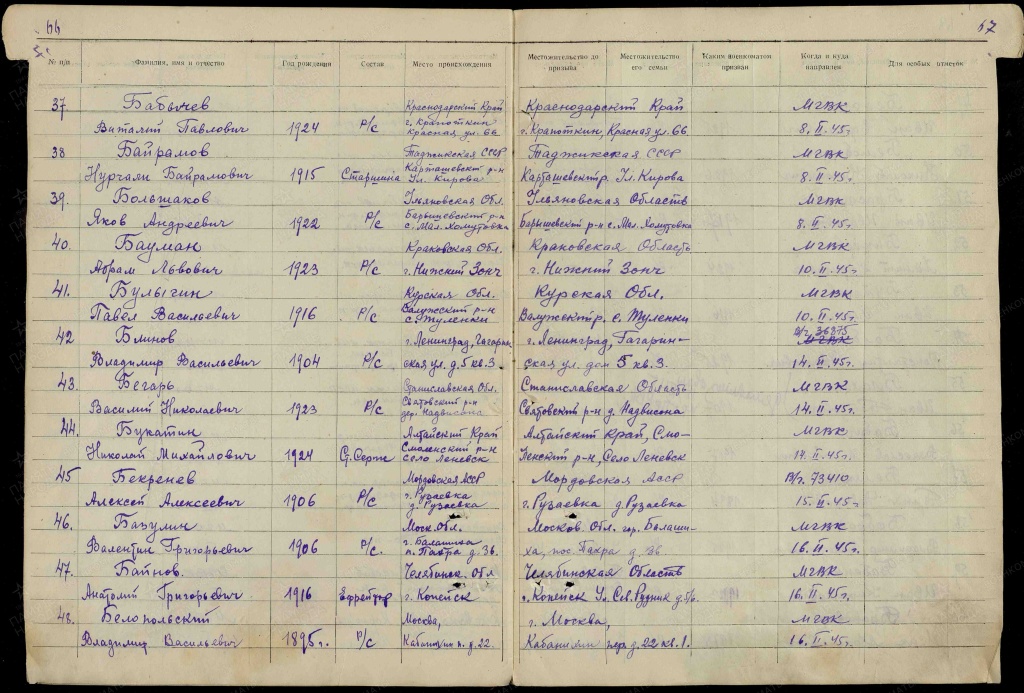 66
67
№ п/п Фамилия, имя и отчество Год рождения Состав Место происхождения Местожительство до призыва Местожительство его семьи Каким военкоматом призван Когда и куда направлен Для особых отметок
37. Бабычев Краснодарский Край Краснодарский Край МГВК
Виталий Павлович 1924 Р/с г. Крапоткин Красная ул. 66 г. Крапоткин, Красная ул. 66 8.II.45г.
38 Байрамов Таджикская ССР Таджикская ССР МГВК
Нурчали Байрамович 1915 Старшина Карташевский р-н Ул. Кирова Карташевский р. Ул. Кирова 8.II.45г.
39. Большаков Ульяновская Обл. Ульяновская Область МГВК
Яков Андреевич 1922 Р/с Барышевский р-н с. Мал. Хомутовка Барышевский р-н с. Мал. Хомутовка 8.II.45г.
40. Бауман Краковская Обл. Краковская Область МГВК
Абрам Львович 1923 Р/с г. Нижний Зонч г. Нижний Зонч 10.II.45г.
41. Булыгин Курская Обл. Курская Обл. МГВК
Павел Васильевич 1916 Р/с Валужский р-н с. Туленки Валужский р. с. Туленки 10.II.45г.
42 Блинов г. Ленинград, Гагарин г. Ленинград, Гагарин- в/ч 36375 МГВК
Владимир Васильевич 1904 Р/с ская ул. д. 5 кв. 3 ская ул. дом 5 кв. 3. 14.II.45г.
43. Бегарь Станиславская Обл. Станиславская Область МГВК
Василий Николаевич 1923 Р/с Святовский р-н дер. Надвисона Святовский р-н д. Надвисона 14.II.45г.
44. Букатин Алтайский Край Алтайский Край, Смо- МГВК
Николай Михайлович 1924 Ст. Серж Смоленский р-н село Леневск ленский р-н, Село Леневск 14.II.45г.
45 Бекренев Мордовская АССР Мордовская АССР В/ч. 73410
Алексей Алексеевич 1906 Р/с г. Рузаевка д. Рузаевка г. Рузаевка д. Рузаевка 15.II.45г.
46. Базулин Моск. Обл. Москов. Обл. гор. Балаши- МГВК
Валентин Григорьевич 1906 Р/с. г. Балашиха п. Пахра д. 36. ха, пос. Пахра д. 36 16.II.45г.
47. Байнов. Челябинск. Обл Челябинская Область МГВК
Анатолий Григорьевич 1916 Ефрейтор г. Копейск г. Копейск Ул. Сев. Рудник 16.II.45г.
48. Белопольский Москва, г. Москва, МГВК
Владимир Васильевич 1895г. Р/с п. д. 22. пер. д. 22 кв. 1. 16.II.45г.